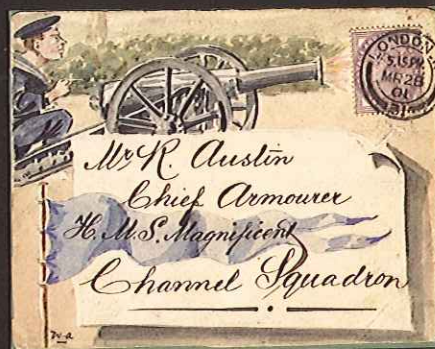 LONDON
5.15 PM
MR 28
01
Mr R. Austin
Chief Armourer
H. M. S. Magnificent
Channel Squadron